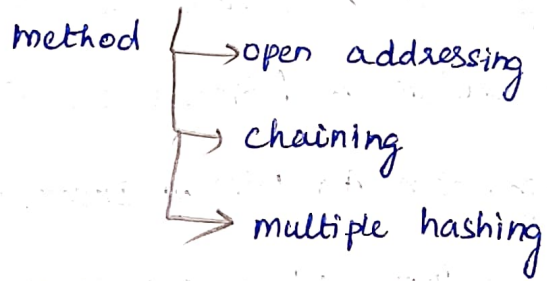 method
open addressing
chaining
multiple hashing